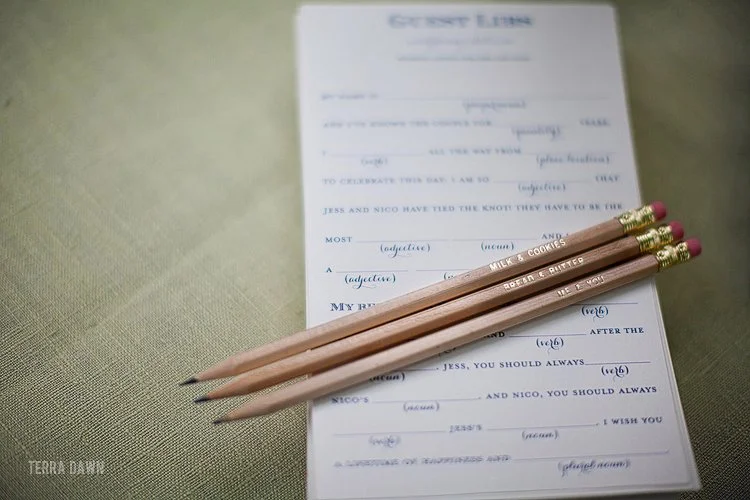 GUEST LIBS
MY NAME IS
(proper noun)
AND I'VE KNOWN THE COUPLE FOR YEARS.
(quantity)
I ALL THE WAY FROM
(verb) (place location)
TO CELEBRATE THIS DAY. I AM SO THAT
(adjective)
JESS AND NICO HAVE TIED THE KNOT! THEY HAVE TO BE THE
MOST AND
(adjective) (noun)
A
(adjective)
MILK & COOKIES
BREAD & BUTTER
ME & YOU
MY
(verb)
AND AFTER THE
(verb)
JESS, YOU SHOULD ALWAYS
(noun) (verb)
NICO'S AND NICO, YOU SHOULD ALWAYS
(noun)
JESS'S . I WISH YOU
(verb) (noun)
A LIFETIME OF HAPPINESS AND
(plural noun)
TERRA DAWN